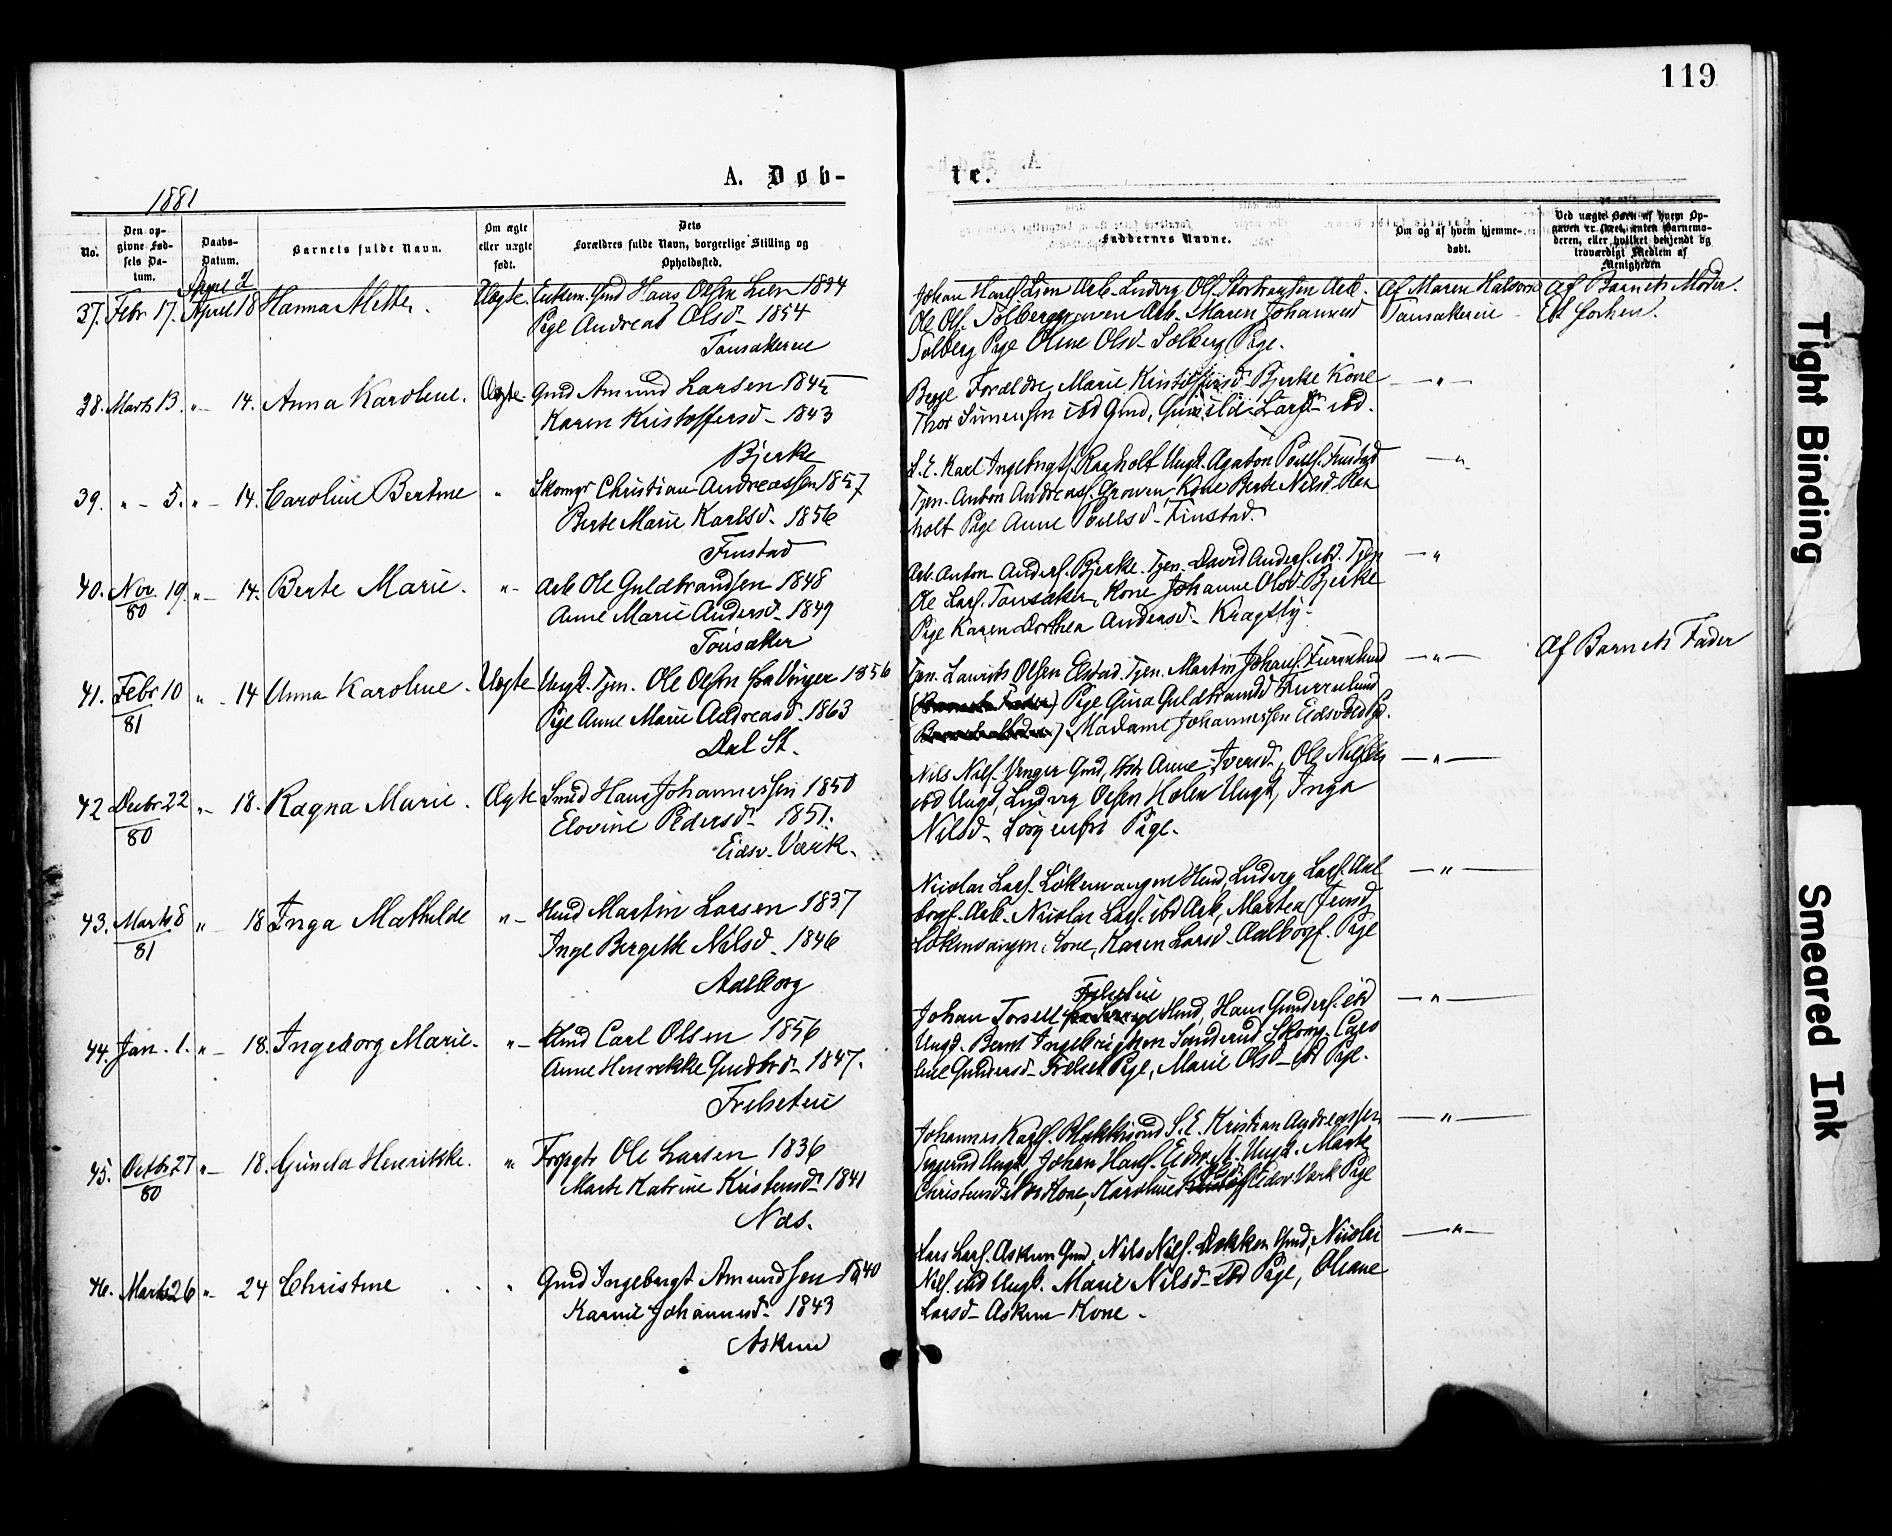 119
A. Døb-
te.
1881
No.
Den op-
givne Fød-
sels Da-
tum.
Daabs-
Datum.
Barnets fulde Navn.
Om ægte
eller uægte
født.
Dets
Forældres fulde Navn, borgerlige Stilling og
Opholdssted.
Faddernes Navne.
Om og af hvem hjemme-
døbt.
Ved uægte Børn af hvem Op-
gaven er skeet, enten Barnemo-
deren, eller hvilket bekjendt og
troværdigt Medlem af
Menigheden
37. Febr 17. April 18 Hanna Mette. Uægte. Enkem. Gmd Hans Olsen Lien 1824
Pige Andrea Olsd. 1854
Tønsakereie
Ole Olss. Solberggraven Arb. Maren Johannesd
Solberg Pige Oline Olsd. Solberg Pige.
Af Maren Halvorsd
Tønsakereie
Af Barnets Moder.
38. Marts 13. " 14. Anna Karoline. Ægte. Gmd Amund Larsen 1842
Karen Kristoffersd. 1843
Bjerke
Begge Forældre, Marie Kristoffersd. Bjerke Kone
Thor Simensen ibd Gmd, Gunild Larsd. ibd.
— " —
39. " 5. " 14. Caroline Bertine " Skomgr Christian Andreassen 1857
Berte Marie Karlsd. 1856
Finstad
Tjen. Anton Andreass. Growen, Kone Berte Nilsd. Ræ
holt Pige Anne Poulsd. Finstad.
— " —
40. Nov. 19. " 14. Berte Marie. " Arb Ole Guldbrandsen 1848
80
Anne Marie Andersd. 1849
Tønsaker
Arb. Anton Anders. Bjerke. Tjen. David Anders. ibd. Tjen
Ole Lars. Tønsaker, Kone Johanne Olsd. Bjerke
Pige Karen Dorthea Andersd. Kragsby.
— "
41. Febr 10 " 14 Anna Karoline. Uægte Ungk. Tjen. Ole Olsen fra Vinger 1856
81
Pige Anne Marie Andreasd. 1863
Dal St.
Tjen. Laurits Olsen Elstad. Tjen. Martin Johans. Furrulund
Pige Gina Guldbrandsd Furrulund
Madame Johannessen Eidsvold
— " —
Af Barnets Fader
42 Decbr 22 " 18. Ragna Marie. Ægte Smed Hans Johannessen 1850
80
Elovine Pedersd. 1851.
Eidsv. Værk.
Nils Nilss. Venger Gmd, Anne Iversd., Ole Nilsen
ibd Ungk, Ludvig Olsen Holen Ungk, Inga
Nilsd. Sorgenfri Pige.
— " —
43. Marts 8 " 18 Inga Mathilde " Hmd Martin Larsen 1837
81
Inge Bergitte Nilsd. 1846
Aalborg
Nicolai Lars. Løkenvangen Hmd, Ludvig Lars. Aal
borg. Arb. Nicolai Lars. ibd Arb, Martea
Løkenvangen Kone, Karen Larsd. Aalborg. Pige
— " —
44. Jan. 1. " 18. Ingeborg Marie. " Hmd Carl Olsen 1856
Anne Henrikke Gudbrd. 1847.
Frelseteie
Hmd, Hans Gunders. ibd
Ungk. Bernt Ingebrigtsen Sanderud Skomg. Caro
line Gundersd. Frelset Pige, Marie Olsd. ibd Pige.
— " —
45. Octbr 27 " 18. Gunda Henrikke. " Ole Larsen 1836
80
Marte Katrine Kristensd. 1841
Næs.
Ungk, Johan Hans. Eidsv. St. Ungk. Marte
Christensd. Næs Kone, Karoline Eidsv. Værk Pige
— " —
46. Marts 26 " 24 Christine " Gmd Ingebrigt Amundsen 1840
Karine Johannesd. 1843
Askum
Lars Lars. Askum Gmd, Nils Nils. Dokken Gmd, Nicolai
Nils. ibd Ungk. Marie Nilsd. ibd Pige, Oliane
Larsd. Askum Kone.
— " —
Tight Binding
Smeared Ink